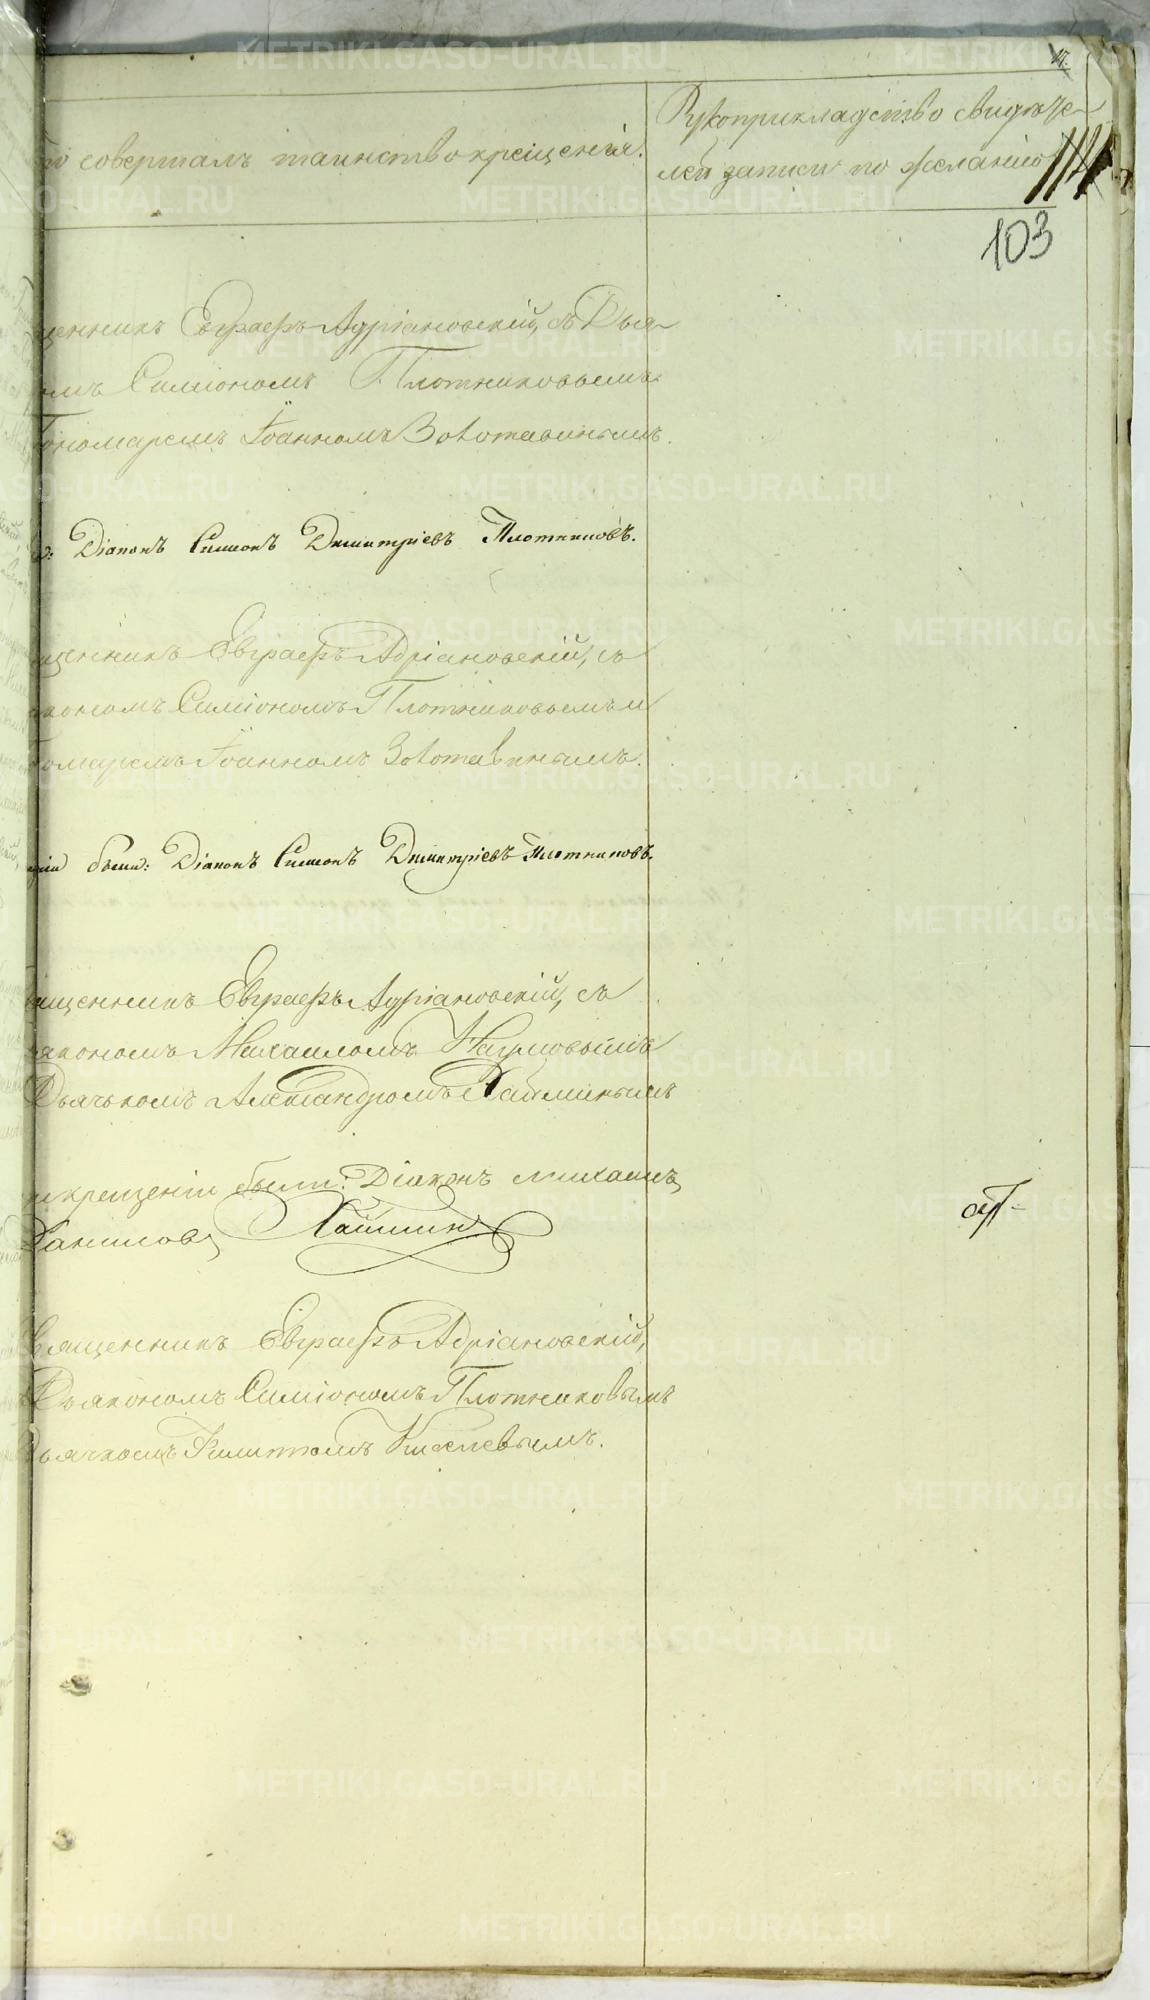 17.
совершалъ таинство крещенія.
Рукоприкладство свидѣте-
лей записи по желанію
103
щенникъ Евграфъ Адріановскій, съ Дья-
омъ Симіономъ Плотниковымъ
ономаремъ Іоанномъ Золотавинымъ.
Діаконъ Симеонъ Димитріевъ Плотниковъ.
щенникъ Евграфъ Адріановскій, съ
кономъ Симіономъ Плотниковымъ и
номаремъ Іоанномъ Золотавинымъ.
были: Діаконъ Симеонъ Димитріевъ Плотниковъ.
ященникъ Евграфъ Адріановскій, съ
яконом Михаиломъ
Дьячькомъ Александромъ Хайминымъ
крещеніи были: Діаконъ Михаилъ
Хайминъ
Священникъ Евграфъ Адріановскій,
Дьякономъ Симіономъ Плотниковымъ
ьячкомъ Филитомъ Киселевымъ.
METRIKI.GASO-URAL.RU